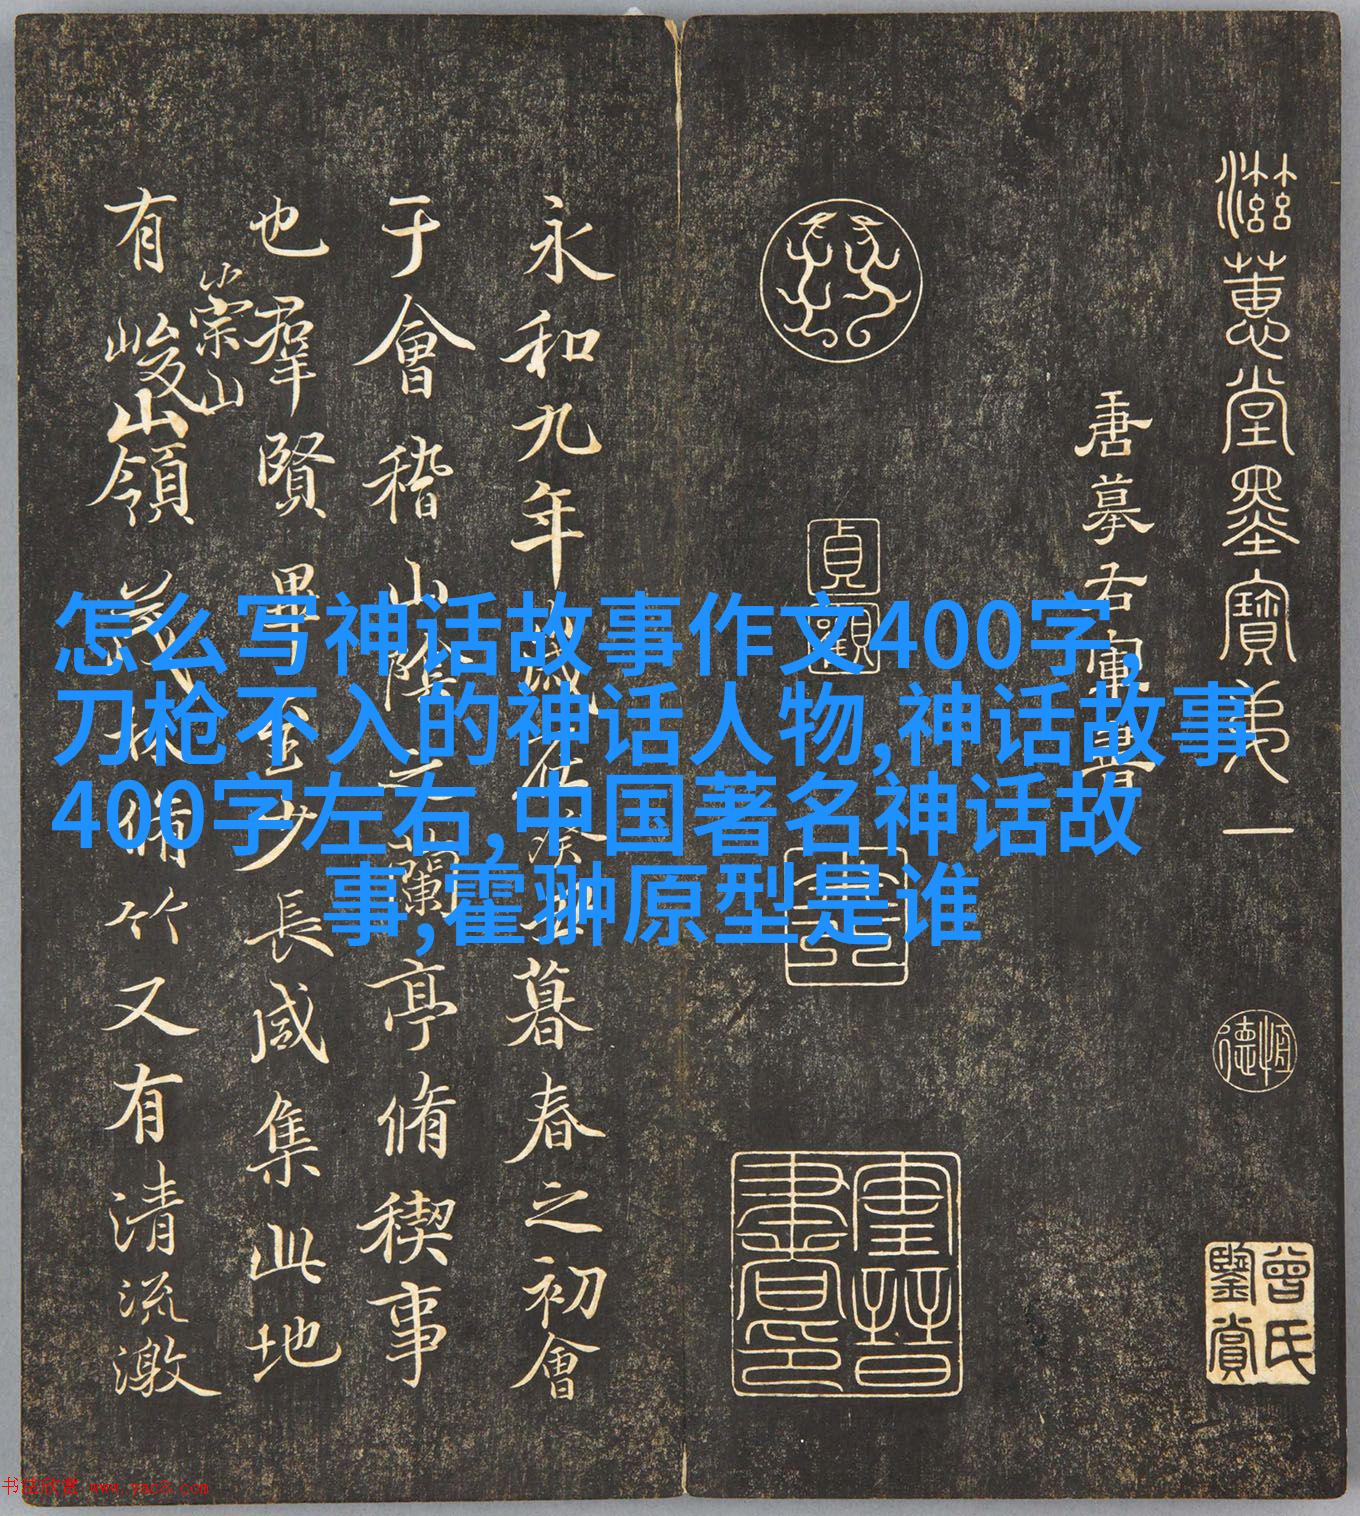 滋蕙堂墨寶弟一
唐摹右軍書
貞觀
恒德
曾氏鑒賞
永和九年
暮春之初會
于會稽山陰之蘭亭脩稧事
也羣賢畢至少長咸集此地
有
崇山
峻山領茂林脩竹又有清流激
怎么写神话故事作文400字,
刀枪不入的神话人物,神话故事
400字左右,中国著名神话故
事,霍翀原型是谁
书法欣赏 www.yac8.com